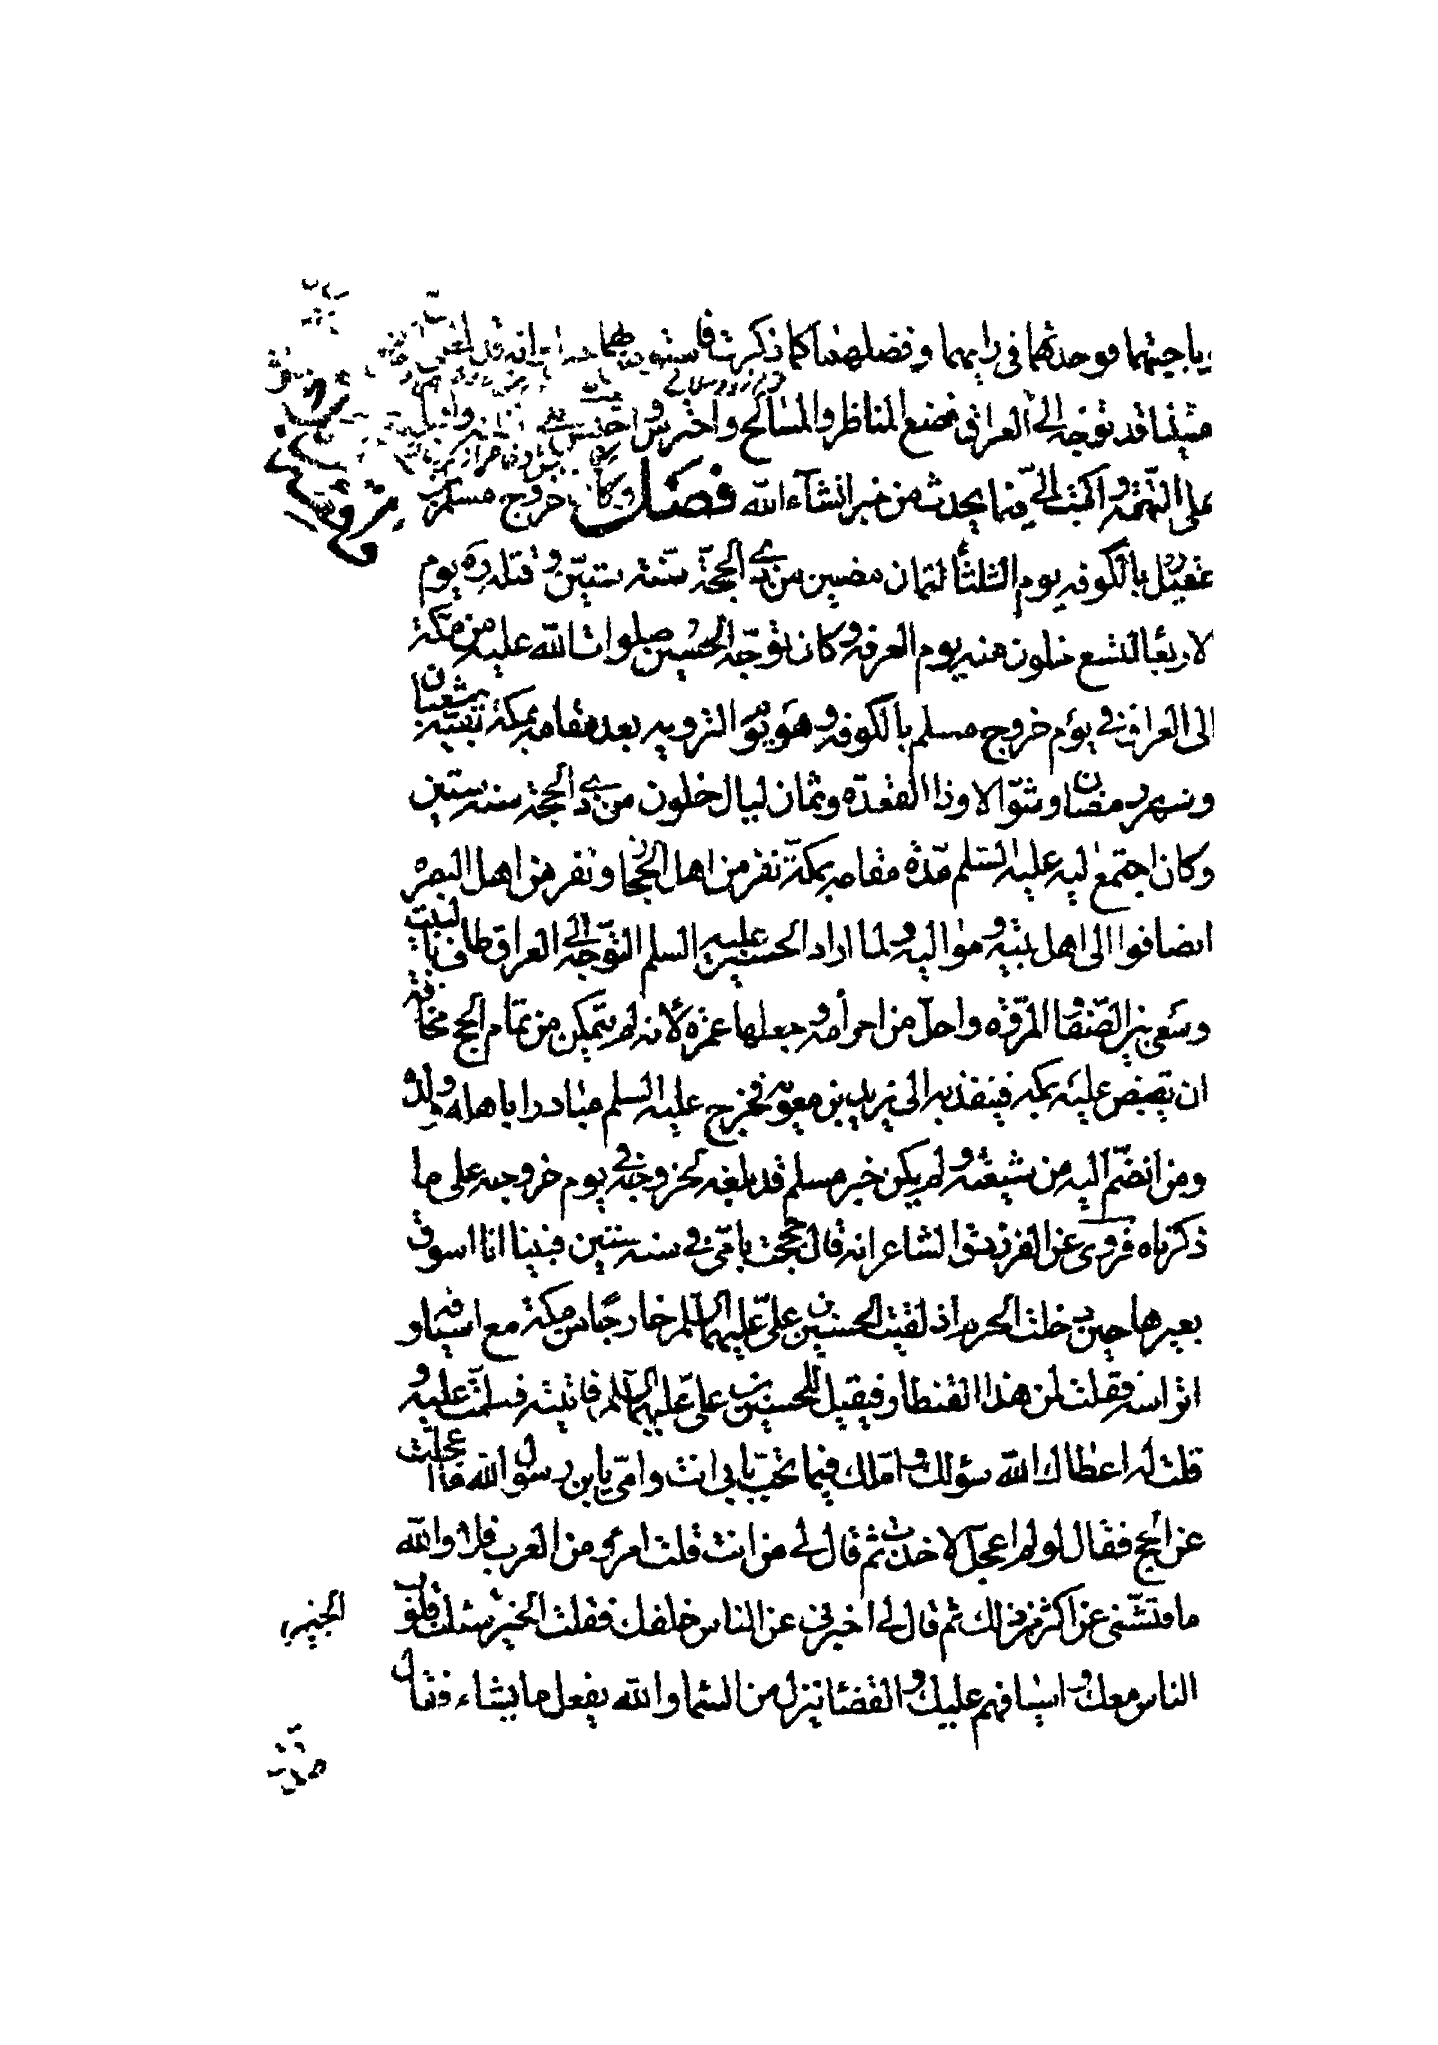 وناجيتهما فوجدتهما في رايهما وفضلهما كما ذكرت فاستوص بهما خيرا انه قد بلغني
حسينا قد توجه الى العراق فضع المناظر والمسالح واحترس واحبس على
على التهمة واكتب الي فيما يحدث من خبر انشاء الله فصل وكان خروج مسلم بن
عقيل بالكوفه يوم الثلثا لثمان مضين من ذي الحجة سنة ستين وقتله ره يوم
الاربعا لتسع خلون منه يوم العرفه وكان توجه الحسين صلوات الله عليه من مكة
الى العراق في يوم خروج مسلم بالكوفه وهو يوم الترويه بعد مقامه بمكة بقية شعبان
وشهر رمضان وشوالا وذا القعده وثمان ليال خلون من ذي الحجة سنه ستين
وكان اجتمع ليه عليه السلم مدة مقامه بمكة نفر من اهل الحجاز ونفر من اهل البصره
انضافوا الى اهل بيته ومواليه ولما اراد الحسين عليه السلم التوجه الى العراق طاف بالبيت
وسعى بين الصفا والمروه واحل من احرامه وجعلها عمره لانه لم يتمكن من تمام الحج مخافة
ان يقبض عليه بمكه فينفذ به الى يزيد بن معويه فخرج عليه السلم مبادرا باهله وولده
ومن انضم اليه من شيعته ولم يكن خبر مسلم قد بلغه لخروجه في يوم خروجه على ما
ذكرناه فروى عن الفرزدق الشاعر انه قال حججت بامي في سنه ستين فبينا انا اسوق
بعيرها حين دخلت الحرم اذ لقيت الحسين بن علي عليهما السلم خارجا من مكة مع اسيافه و
اتراسه فقلت لمن هذا القطار فقيل للحسين بن علي عليهما السلم فاتيته فسلمت عليه و
قلت له اعطاك الله سؤلك واملك فيما تحب بابي انت وامي يابن رسول الله ما اعجلك
عن الحج فقال لو لم اعجل لاخذت ثم قال لي من انت قلت امرؤ من العرب فلا والله
ما فتشني عن اكثر من ذلك ثم قال لي اخبرني عن الناس خلفك فقلت الخبير سئلت قلوب
الناس معك واسيافهم عليك والقضا ينزل من السما والله يفعل ما يشاء فقال
الخبير